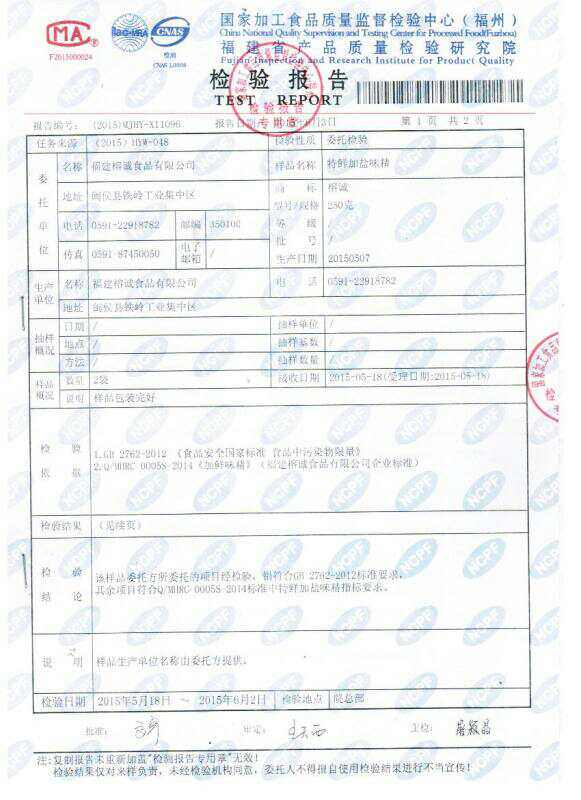 MA
F2015000024
ilac-MRA
CNAS
检测
国家加工食品质量监督检验中心（福州）
China National Quality Supervision and Testing Center for Processed Food(Fuzhou)
福建省产品质量检验研究院
Fujian Inspection and Research Institute for Product Quality
检验报告
TEST REPORT
检验报告
专用章
报告编号: (2015)WJHY-X11096 报告日期 第 1 页 共 2 页
任务来源 (2015)HYW-048 检验性质 委托检验
委托单位 名称 福建榕诚食品有限公司 样品名称 特鲜加盐味精
地址 闽侯县铁岭工业集中区 商标 榕诚
型号/规格 250克
电话 0591-22918782 邮编 350100 等级 /
批号 /
传真 0591-87450050 电子邮箱 / 生产日期 20150507
生产单位 名称 福建榕诚食品有限公司 电话 0591-22918782
地址 闽侯县铁岭工业集中区
抽样概况 日期 / 抽样单位 /
地点 / 抽样基数 /
方法 / 抽样数量 /
样品概况 数量 2袋 接收日期 2015-05-18(受理日期:2015-05-18)
说明 样品包装完好
检验依据
1.GB 2762-2012 《食品安全国家标准 食品中污染物限量》
2.Q/MHRC 0005S-2014《加鲜味精》（福建榕诚食品有限公司企业标准）
检验结果 （见续页）
检验结论
该样品委托方所委托的项目经检验，铅符合GB 2762-2012标准要求，
其余项目符合Q/MHRC 0005S-2014标准中特鲜加盐味精指标要求。
说明 样品生产单位名称由委托方提供。
检验日期 2015年5月18日 ～ 2015年6月2日 检验地点 院总部
批准: 审定: 主检:
注:复制报告未重新加盖"检测报告专用章"无效!
检验结果仅对来样负责，未经检验机构同意，委托人不得擅自使用检验结果进行不当宣传!